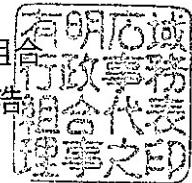 組合
浩
有明広域
行政事務
組合代表
理事之印